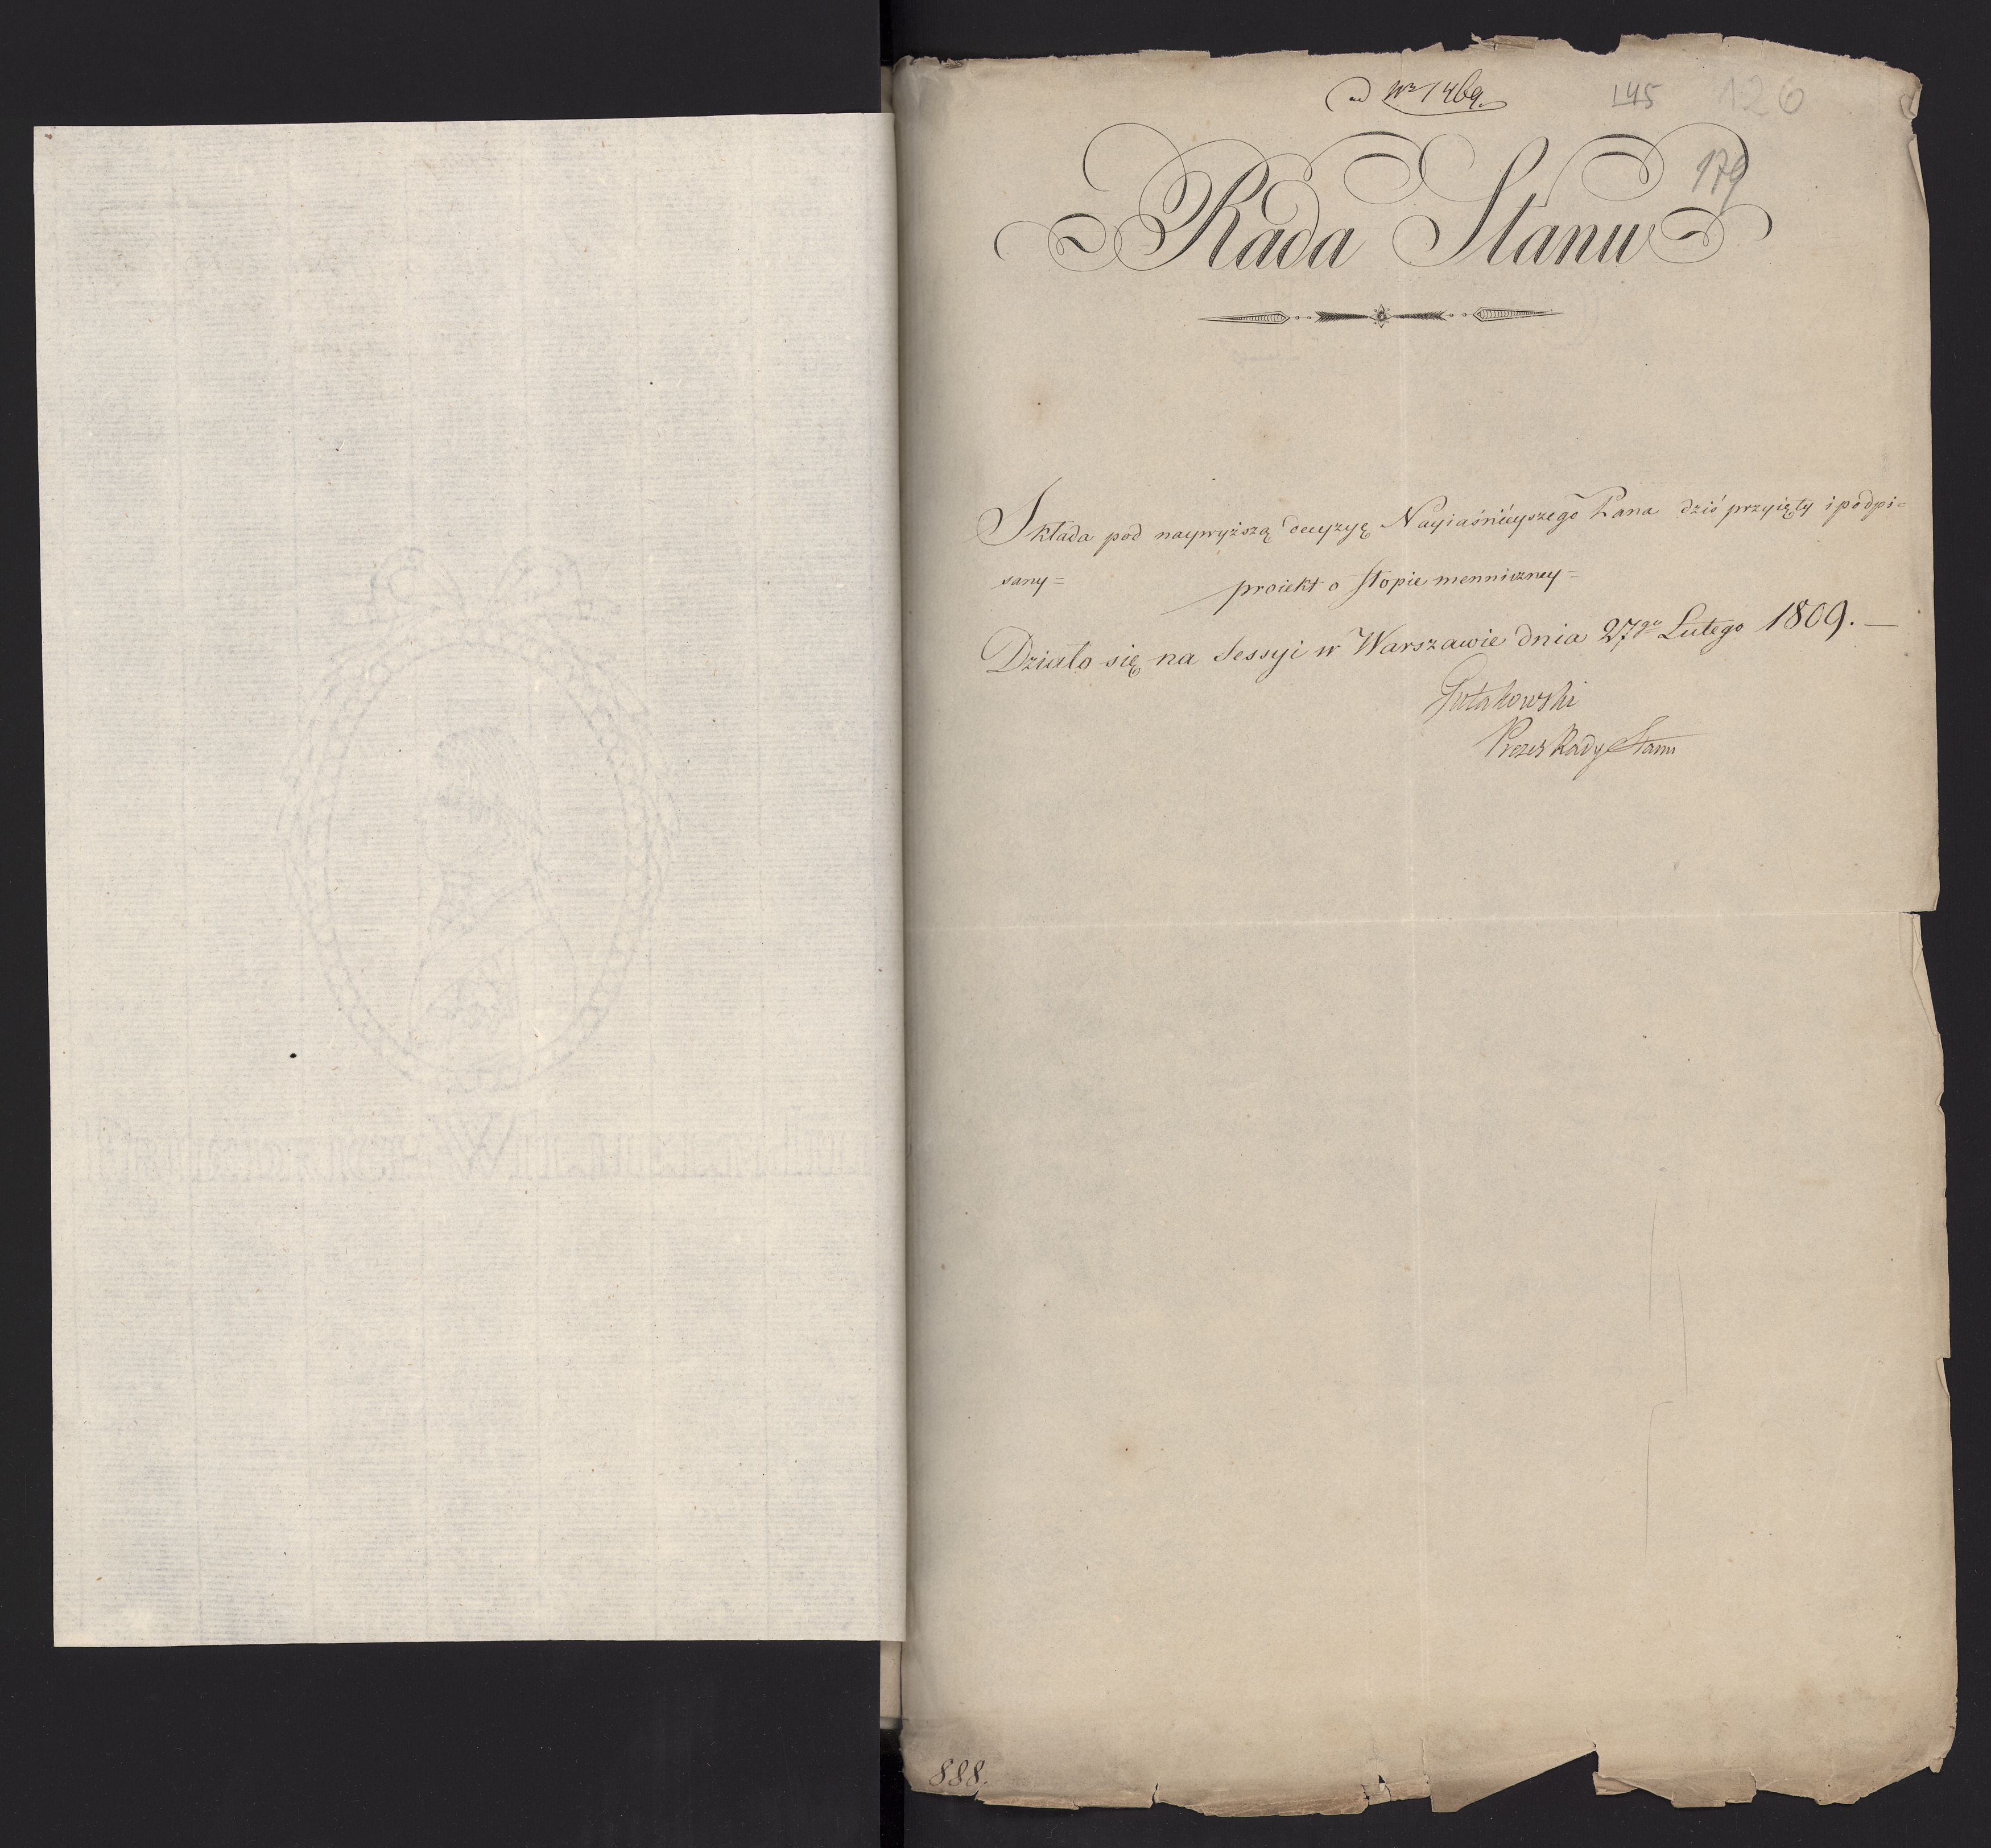 ad Nr 1469.
145 126
179
Rada Stanu
Składa pod naywyższą decyzyę Nayiaśnieyszego Pana dziś przyięty i podpi=
sany=
proiekt o stopie menniczney=
Działo się na Sessyi w Warszawie dnia 27go Lutego 1809.—
Gutakowski
Prezes Rady Stanu
888.